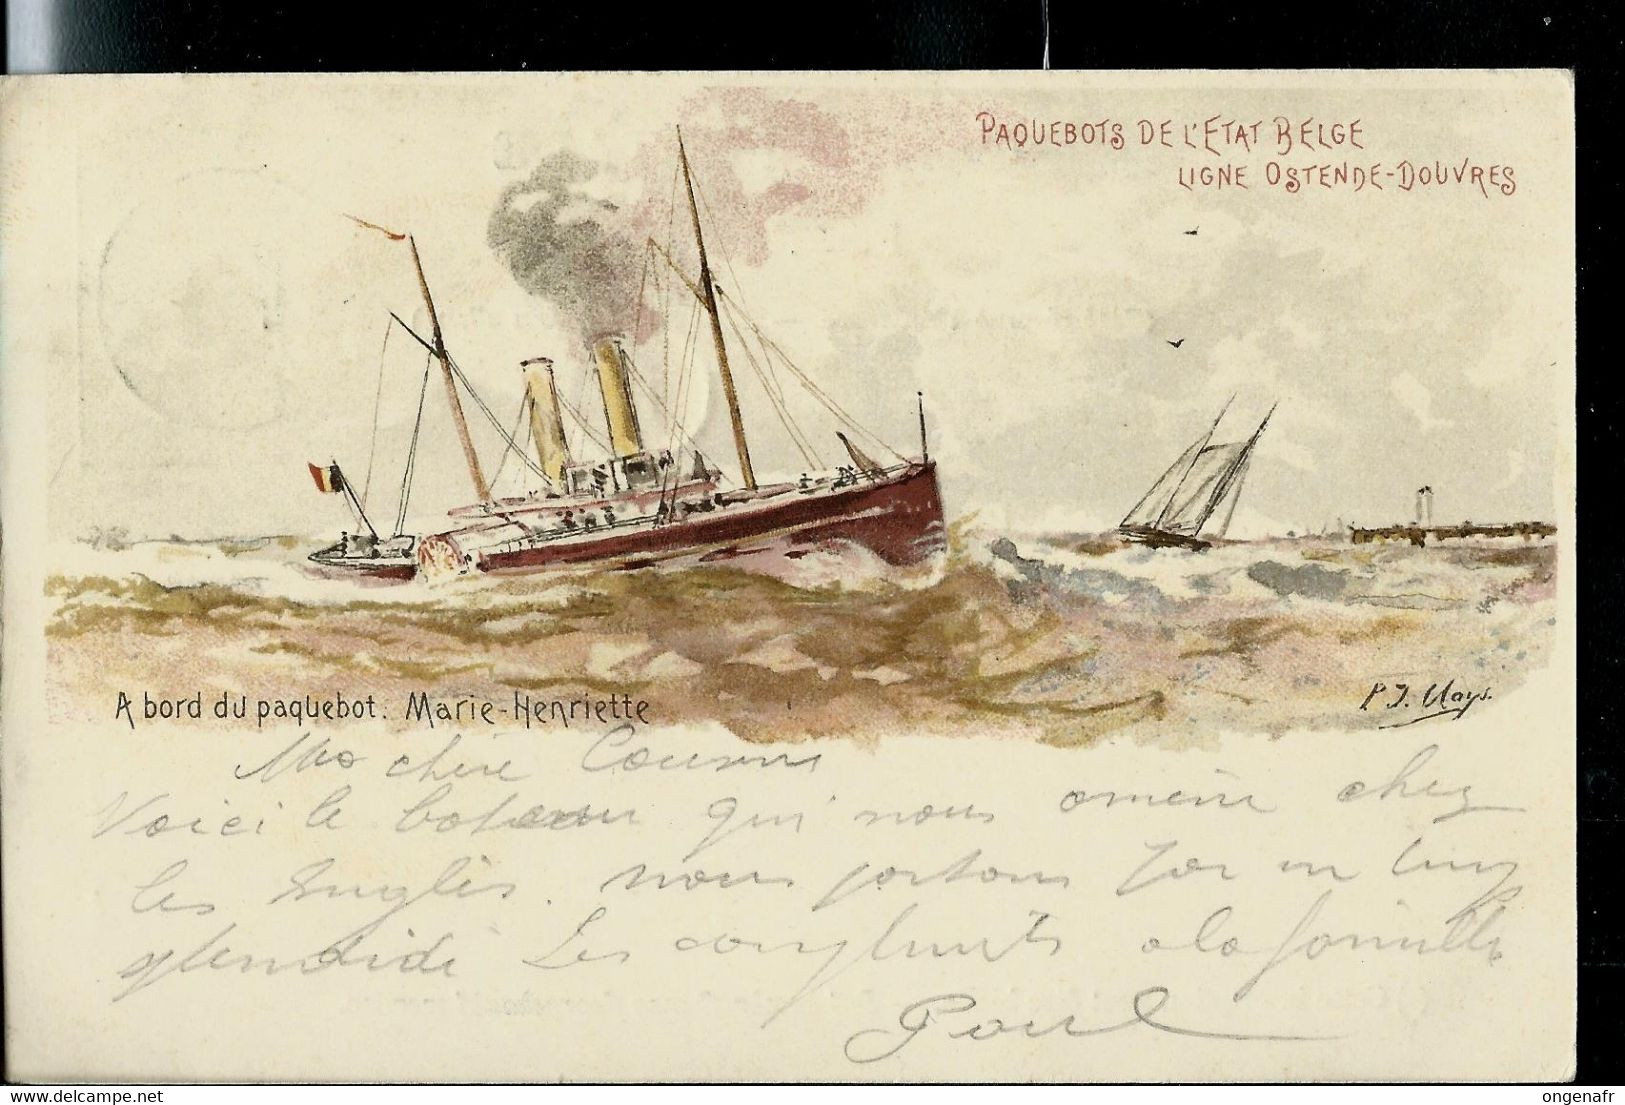 PAQUEBOTS DE L'ETAT BELGE
LIGNE OSTENDE-DOUVRES
A bord du paquebot. Marie-Henriette
P. J. Clays.
Ma chère Cousine
Voici le bateau qui nous amène chez
les Anglès. nous partons par un temp
splendide Les compliments a la famille
Paul
delcampe.net
ongenafr